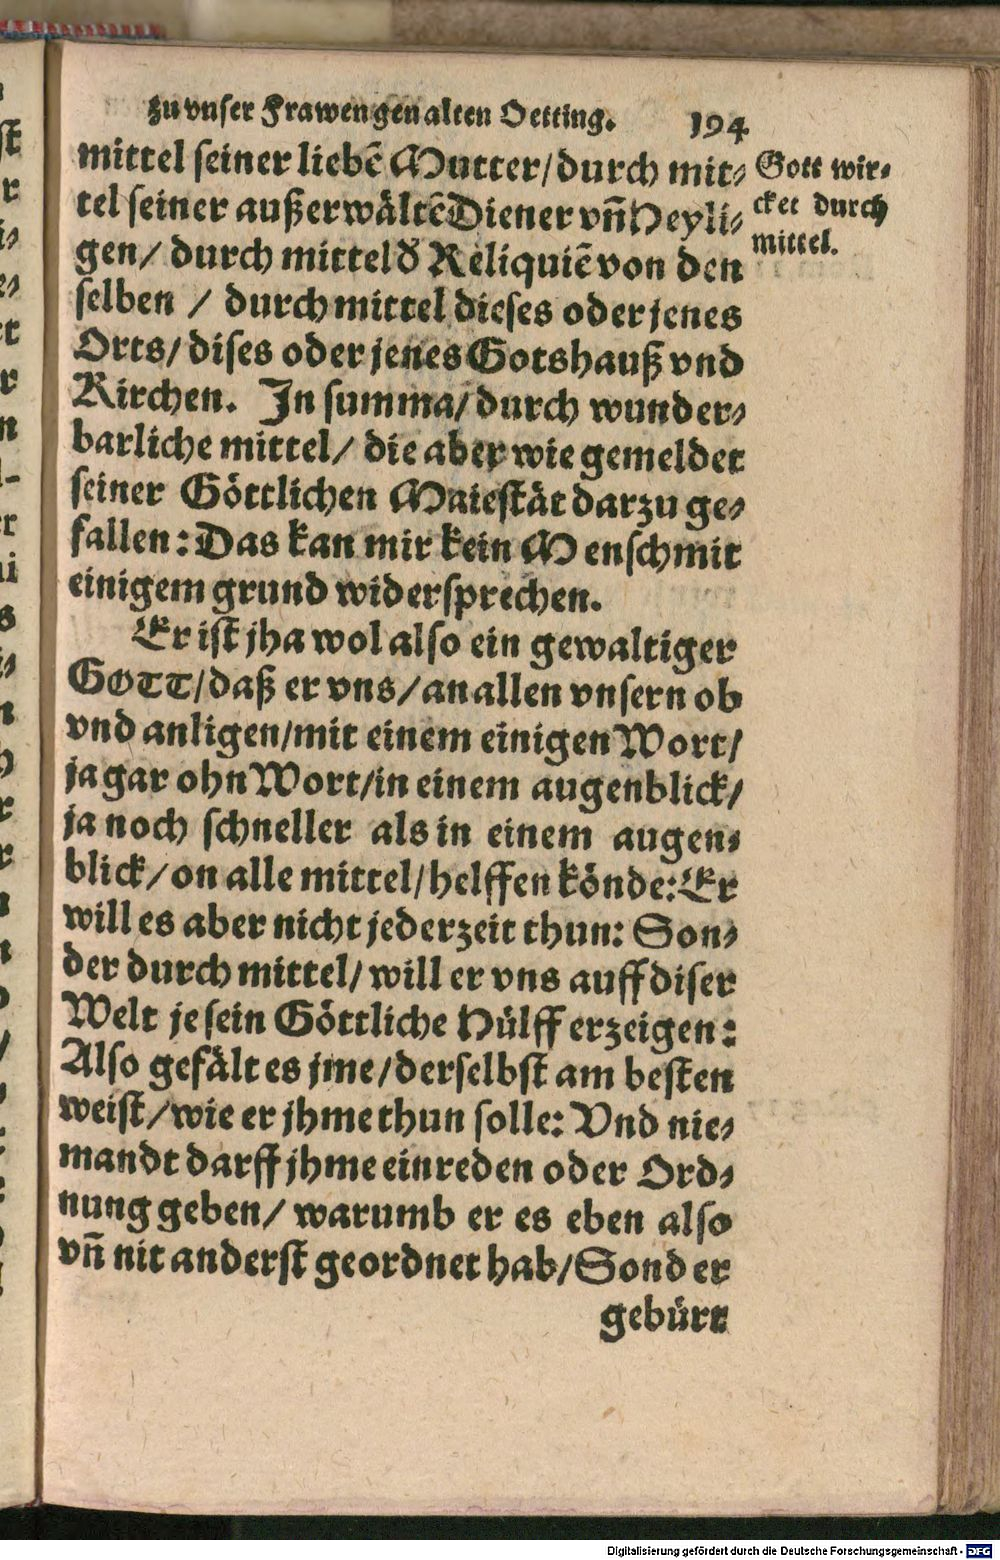 zu vnser Frawen gen alten Oetting. 194
mittel seiner liebẽ Mutter/durch mit⸗
tel seiner außerwältẽ Diener vñ Heyli⸗
gen/ durch mittel ð Reliquiẽ von den
selben / durch mittel dieses oder jenes
Orts/ dises oder jenes Gotshauß vnd
Kirchen. In summa/ durch wunder⸗
barliche mittel/ die aber wie gemeldet
seiner Göttlichen Maiestät darzu ge⸗
fallen: Das kan mir kein Mensch mit
einigem grund widersprechen.
Er ist jha wol also ein gewaltiger
GOTT/daß er vns/an allen vnsern ob
vnd anligen/mit einem einigen Wort/
ja gar ohn Wort/in einem augenblick/
ja noch schneller als in einem augen⸗
blick/on alle mittel/helffen könde: Er
will es aber nicht jederzeit thun: Son⸗
der durch mittel/ will er vns auff diser
Welt je sein Göttliche Hülff erzeigen:
Also gefält es jme/derselbst am besten
weist/wie er jhme thun solle: Vnd nie⸗
mandt darff jhme einreden oder Ord⸗
nung geben/ warumb er es eben also
vñ nit anderst geordnet hab/Sonder
gebürt
Gott wir⸗
cket durch
mittel.
Digitalisierung gefördert durch die Deutsche Forschungsgemeinschaft - DFG